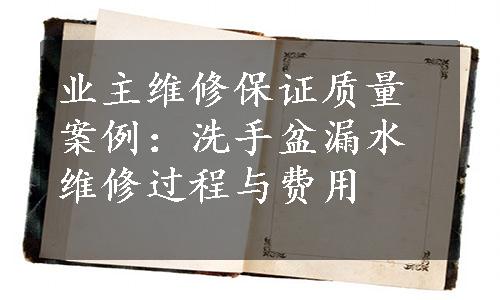 业主维修保证质量
案例：洗手盆漏水
维修过程与费用